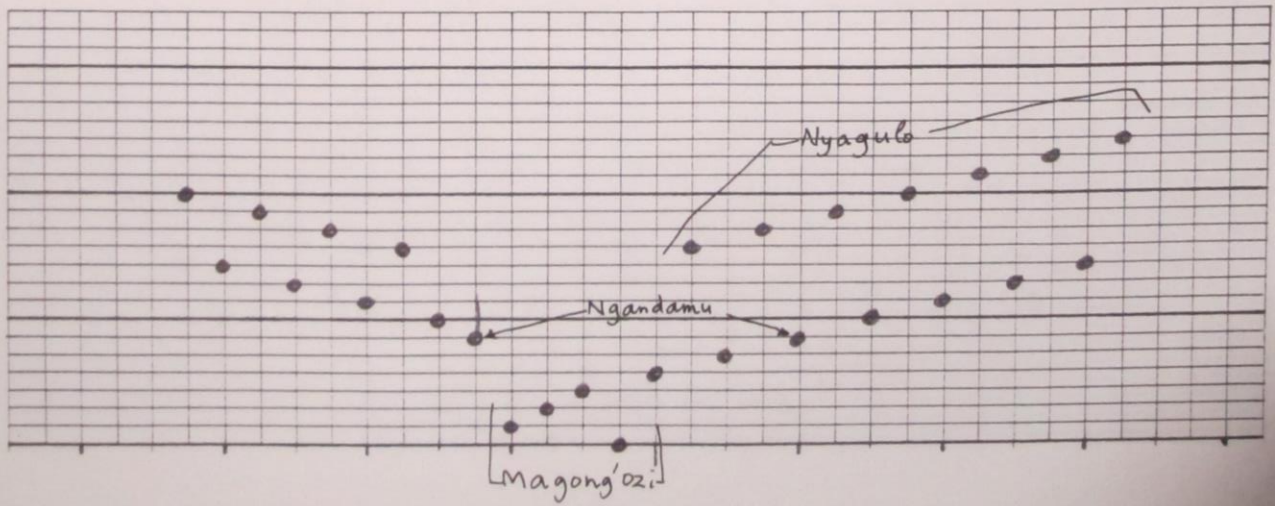 Nyagulo
Ngandamu
Magong'ozi